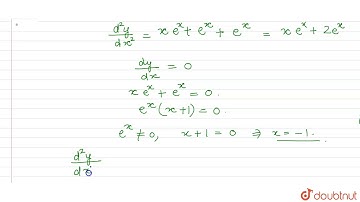 d²y/dx² = x eˣ + eˣ + eˣ = x eˣ + 2eˣ
dy/dx = 0
x eˣ + eˣ = 0.
eˣ (x+1) = 0.
eˣ ≠ 0, x + 1 = 0 ⇒ x = -1.
d²y/dx
doubtnut